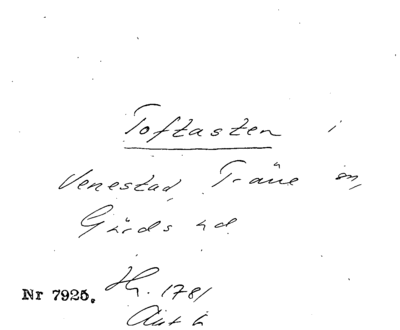 Toftasten i
Venestad, Träne sn,
Gärds hd
Nr 7925. Hr. 1781